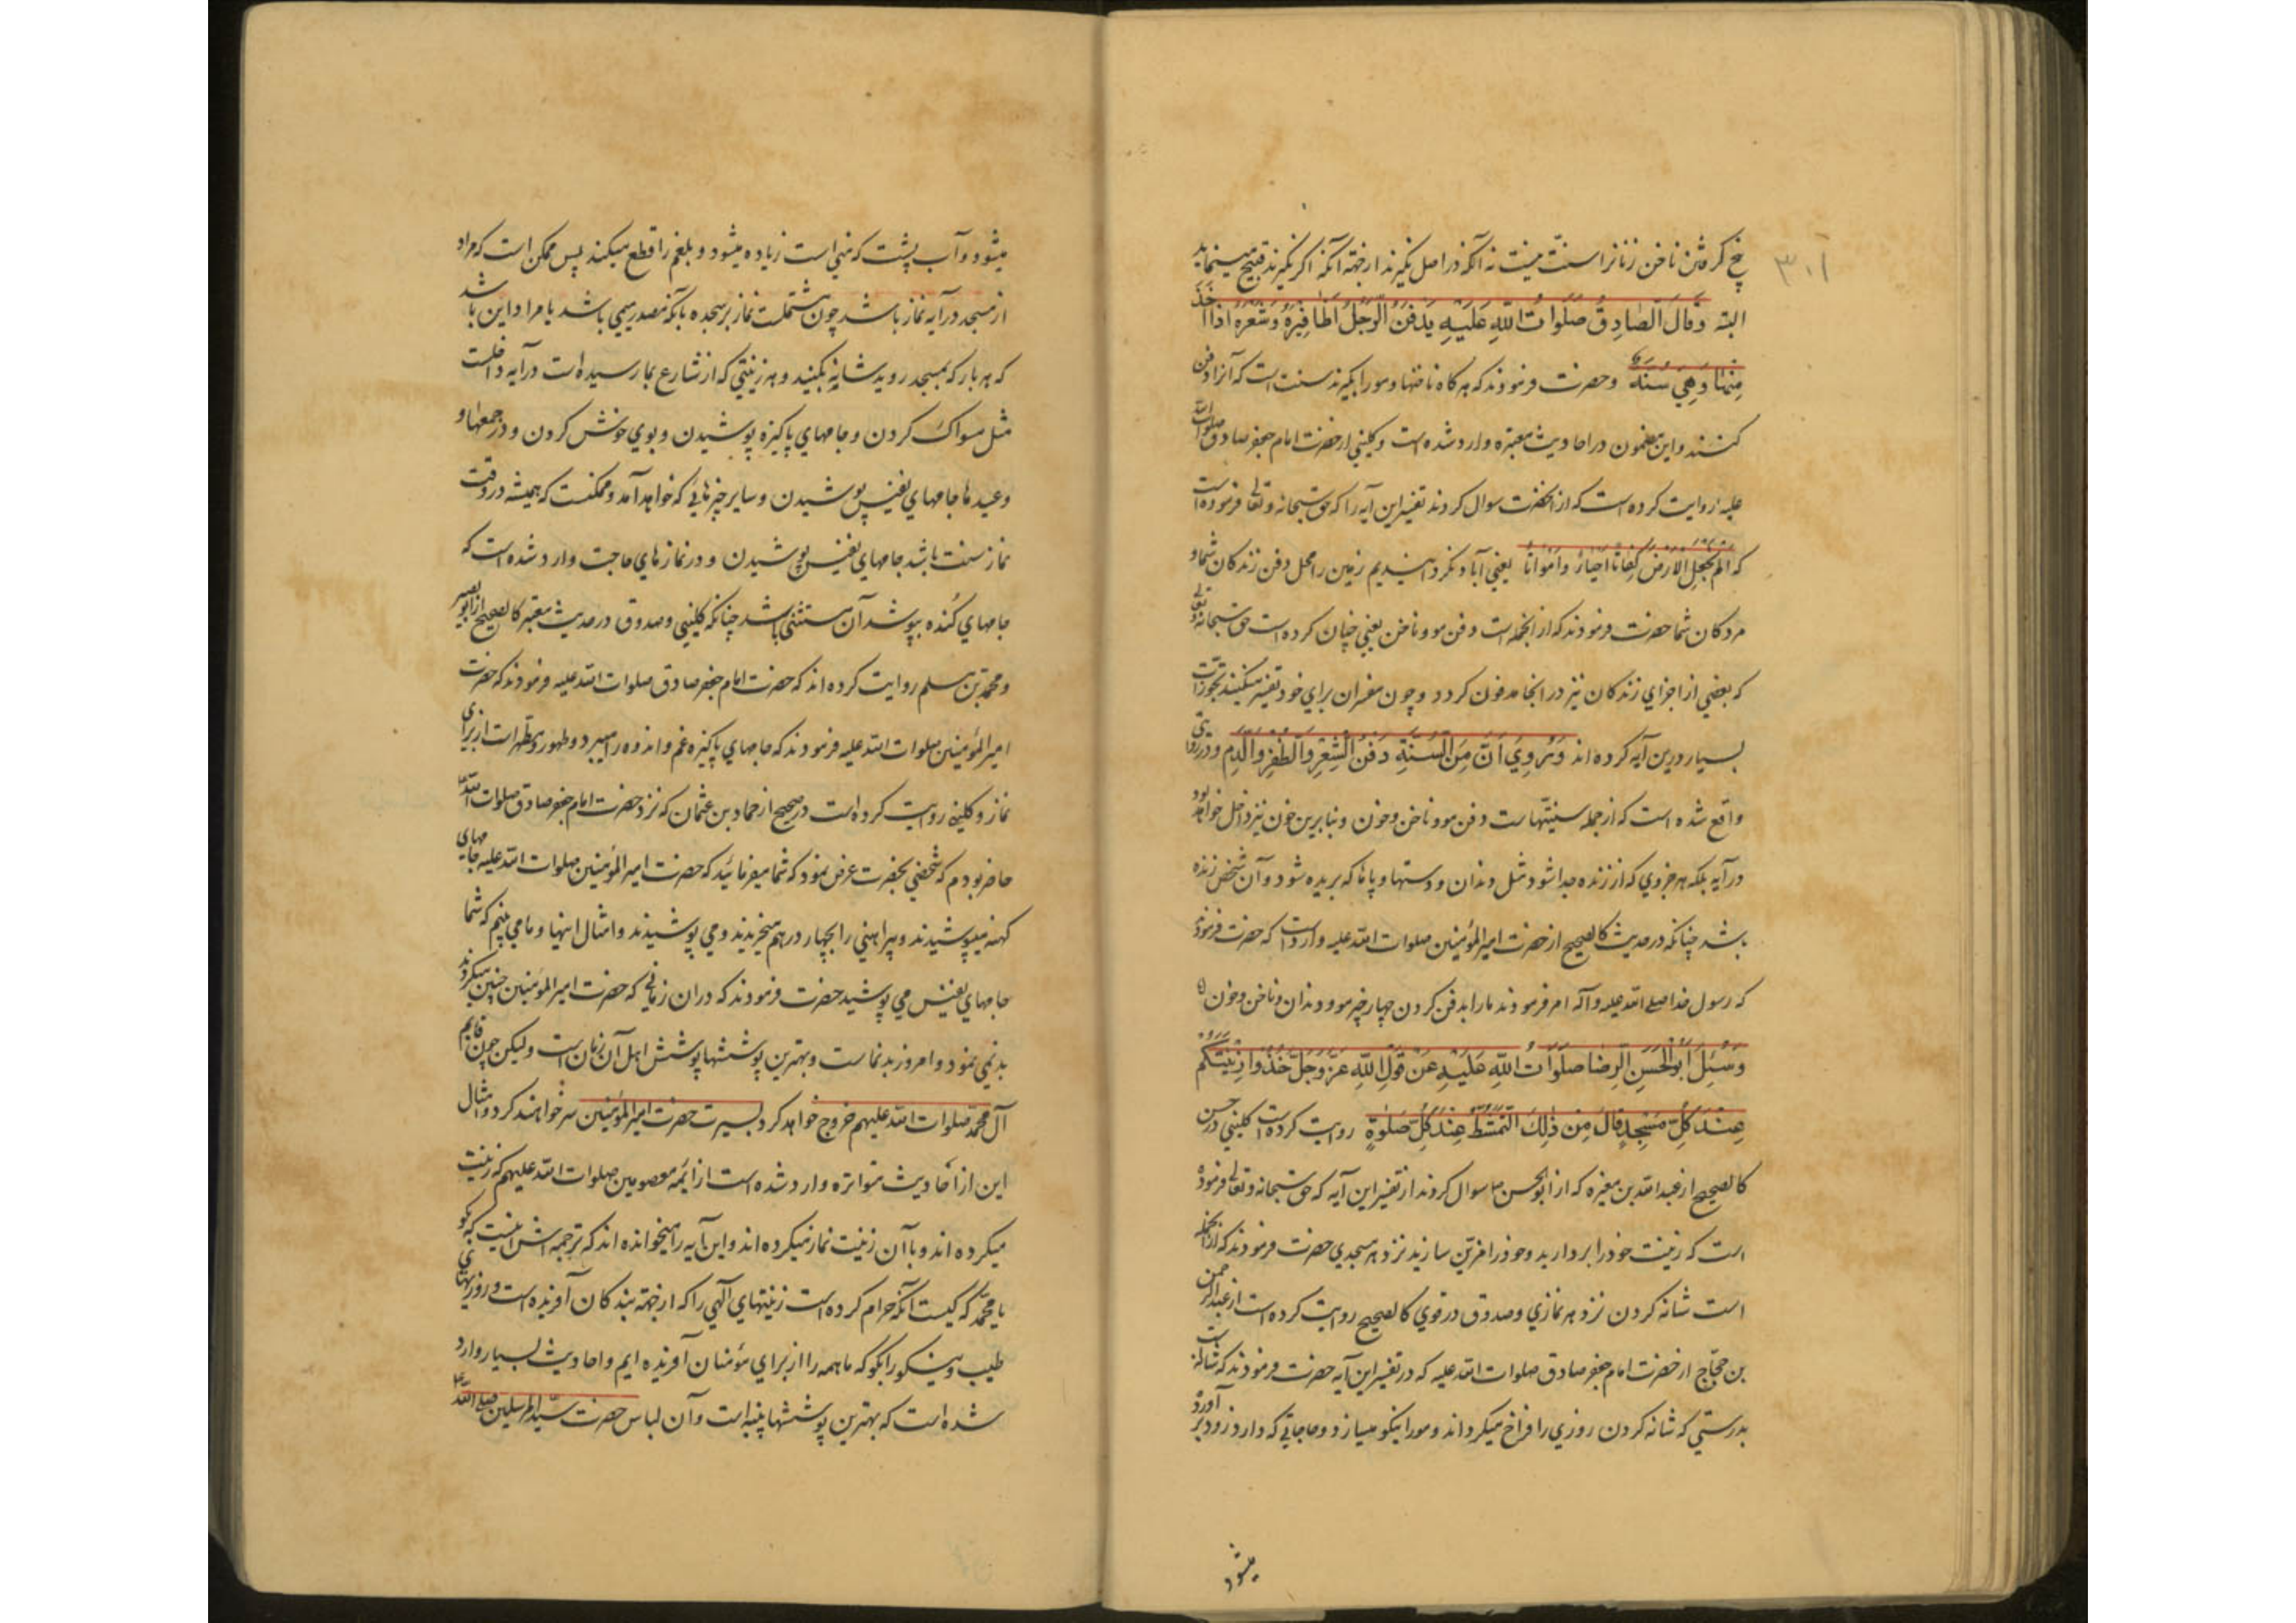 ۳۰۱
پنج گرفتن ناخن زنانرا سنت نیست نه آنکه در اصل نگیرند از جهة آنکه اگر نگیرند قبیح مینماید
البته وَقَالَ الصَّادِقُ صَلَوَاتُ اللّٰهِ عَلَیْهِ یَدْفَنُ الرَّجُلُ اَظَافِیرَهُ وَشَعْرَهُ اِذَا اَخَذَ
مِنْهَا وَهِيَ سُنَّةٌ وحضرت فرمودند که هر کاه ناخنها ومو را بگیرند سنت است که آنرا دفن
کنند واین مضمون در احادیث معتبره وارد شده است وکلیني از حضرت امام جعفر صادق صلوات الله
علیه روایت کرده است که از آنحضرت سوال کردند تفسیر این آیه را که حق سبحانه وتعالی فرموده است
که اَلَمْ نَجْعَلِ الْاَرْضَ کِفَاتًا اَحْیَاءً وَاَمْوَاتًا یعني آیا نکردانیدیم زمین را محل دفن زندکان شما و
مردکان شما حضرت فرمودند که از آنجمله است دفن مو وناخن یعني چنان کرده است حق سبحانه وتعالی
که بعضي از اجزاي زندکان نیز در آنجا مدفون کردد وچون مفسران براي خود تفسیر میکنند تجوزات
بسیار درین آیه کرده اند وَرُوِيَ اَنَّ مِنَ السُّنَّةِ دَفْنَ الشَّعْرِ وَالظُّفْرِ وَالدَّمِ ودر روایتی
واقع شده است که از جمله سنتهاست دفن مو وناخن وخون وبنابرین خون نیز داخل خواهد بود
در آیه بلکه هر جزوي که از زنده جدا شود مثل دندان ودستها وپاها که بریده شود وآن شخص زنده
باشد چنانکه در حدیث کالصحیح از حضرت امیر المؤمنین صلوات الله علیه وارد است که حضرت فرمودند
که رسول خدا صلی الله علیه وآله امر فرمودند ما را بدفن کردن چهار چیز مو ودندان وناخن وخون
وَسُئِلَ اَبُو الْحَسَنِ الرِّضَا صَلَوَاتُ اللّٰهِ عَلَیْهِ عَنْ قَوْلِ اللّٰهِ عَزَّ وَجَلَّ خُذُوا زِینَتَکُمْ
عِنْدَ کُلِّ مَسْجِدٍ قَالَ مِنْ ذٰلِکَ التَّمَشُّطُ عِنْدَ کُلِّ صَلٰوةٍ روایت کرده است کلیني در حسن
کالصحیح از عبد الله بن مغیره که از ابو الحسن سوال کردند از تفسیر این آیه که حق سبحانه وتعالی فرموده
است که زینت خود را بردارید وخود را مزین سازید نزد هر مسجدي حضرت فرمودند که از آنجمله
است شانه کردن نزد هر نمازي وصدوق در قوي کالصحیح روایت کرده است از عبد الرحمن
بن حجاج از حضرت امام جعفر صادق صلوات الله علیه که در تفسیر این آیه حضرت فرمودند که شانه است
بدرستي که شانه کردن روزي را فراخ میکرداند ومو را نیکو میسازد وحاجاتي که دارد زود بر آورد
میشود
میشود وآب پشت که مني است زیاده میشود وبلغم را قطع میکند پس ممکن است که مراد
از مسجد در آیه نماز باشد چون مشتملست نماز بر سجده یا آنکه مصدر میمي باشد یا مراد این باشد
که هر بار که بمسجد روید شانه بکنید وهر زینتي که از شارع بما رسیده است در آیه داخلست
مثل مسواک کردن وجامهاي پاکیزه پوشیدن وبوي خوش کردن ودر جمعها و
وعیدها جامهاي نفیس پوشیدن وسایر چیزهائي که خواهد آمد وممکنست که همیشه در وقت
نماز سنت باشد جامهاي نفیس پوشیدن ودر نمازهاي حاجت وارد شده است که
جامهاي کُنده بپوشد آن مستثنی باشد چنانکه کلیني وصدوق در حدیث معتبر کالصحیح از ابو بصیر
ومحمد بن مسلم روایت کرده اند که حضرت امام جعفر صادق صلوات الله علیه فرمودند که حضرت
امیر المؤمنین صلوات الله علیه فرمودند که جامهاي پاکیزه غم واندوه را میبرد وطهور وطهارت از براي
نماز وکلیني روایت کرده است در صحیح از حماد بن عثمان که نزد حضرت امام جعفر صادق صلوات الله
حاضر بودم که شخصي بحضرت عرض نمود که شما میفرمائید که حضرت امیر المؤمنین صلوات الله علیه جامهاي
کهنه میپوشیدند وپیراهني را بچهار درهم میخریدند ومي پوشیدند وامثال اینها وما مي بینم که شما
جامهاي نفیس مي پوشید حضرت فرمودند که در آن زماني که حضرت امیر المؤمنین چنین میکردند
بد نمي نمود وامروز بد نماست وبهترین پوششها پوشش اهل آن زمان است ولیکن چون قایم
آل محمد صلوات الله علیهم خروج خواهد کرد بسیرت حضرت امیر المؤمنین سر خواهند کرد وامثال
این از احادیث متواتره وارد شده است از ائمه معصومین صلوات الله علیهم که زینت
میکرده اند وبا آن زینت نماز میکرده اند واین آیه را میخوانده اند که ترجمه اش اینست که بکو
یا محمد که کیست آنکه حرام کرده است زینتهاي الهي را که از جهة بندکان آفریده است وروزیهاي
طیب ونیکو را بکو که ما همه را از براي مؤمنان آفریده ایم واحادیث بسیار وارد
شده است که بهترین پوششها پنبه است وآن لباس حضرت سید المرسلین صلی الله